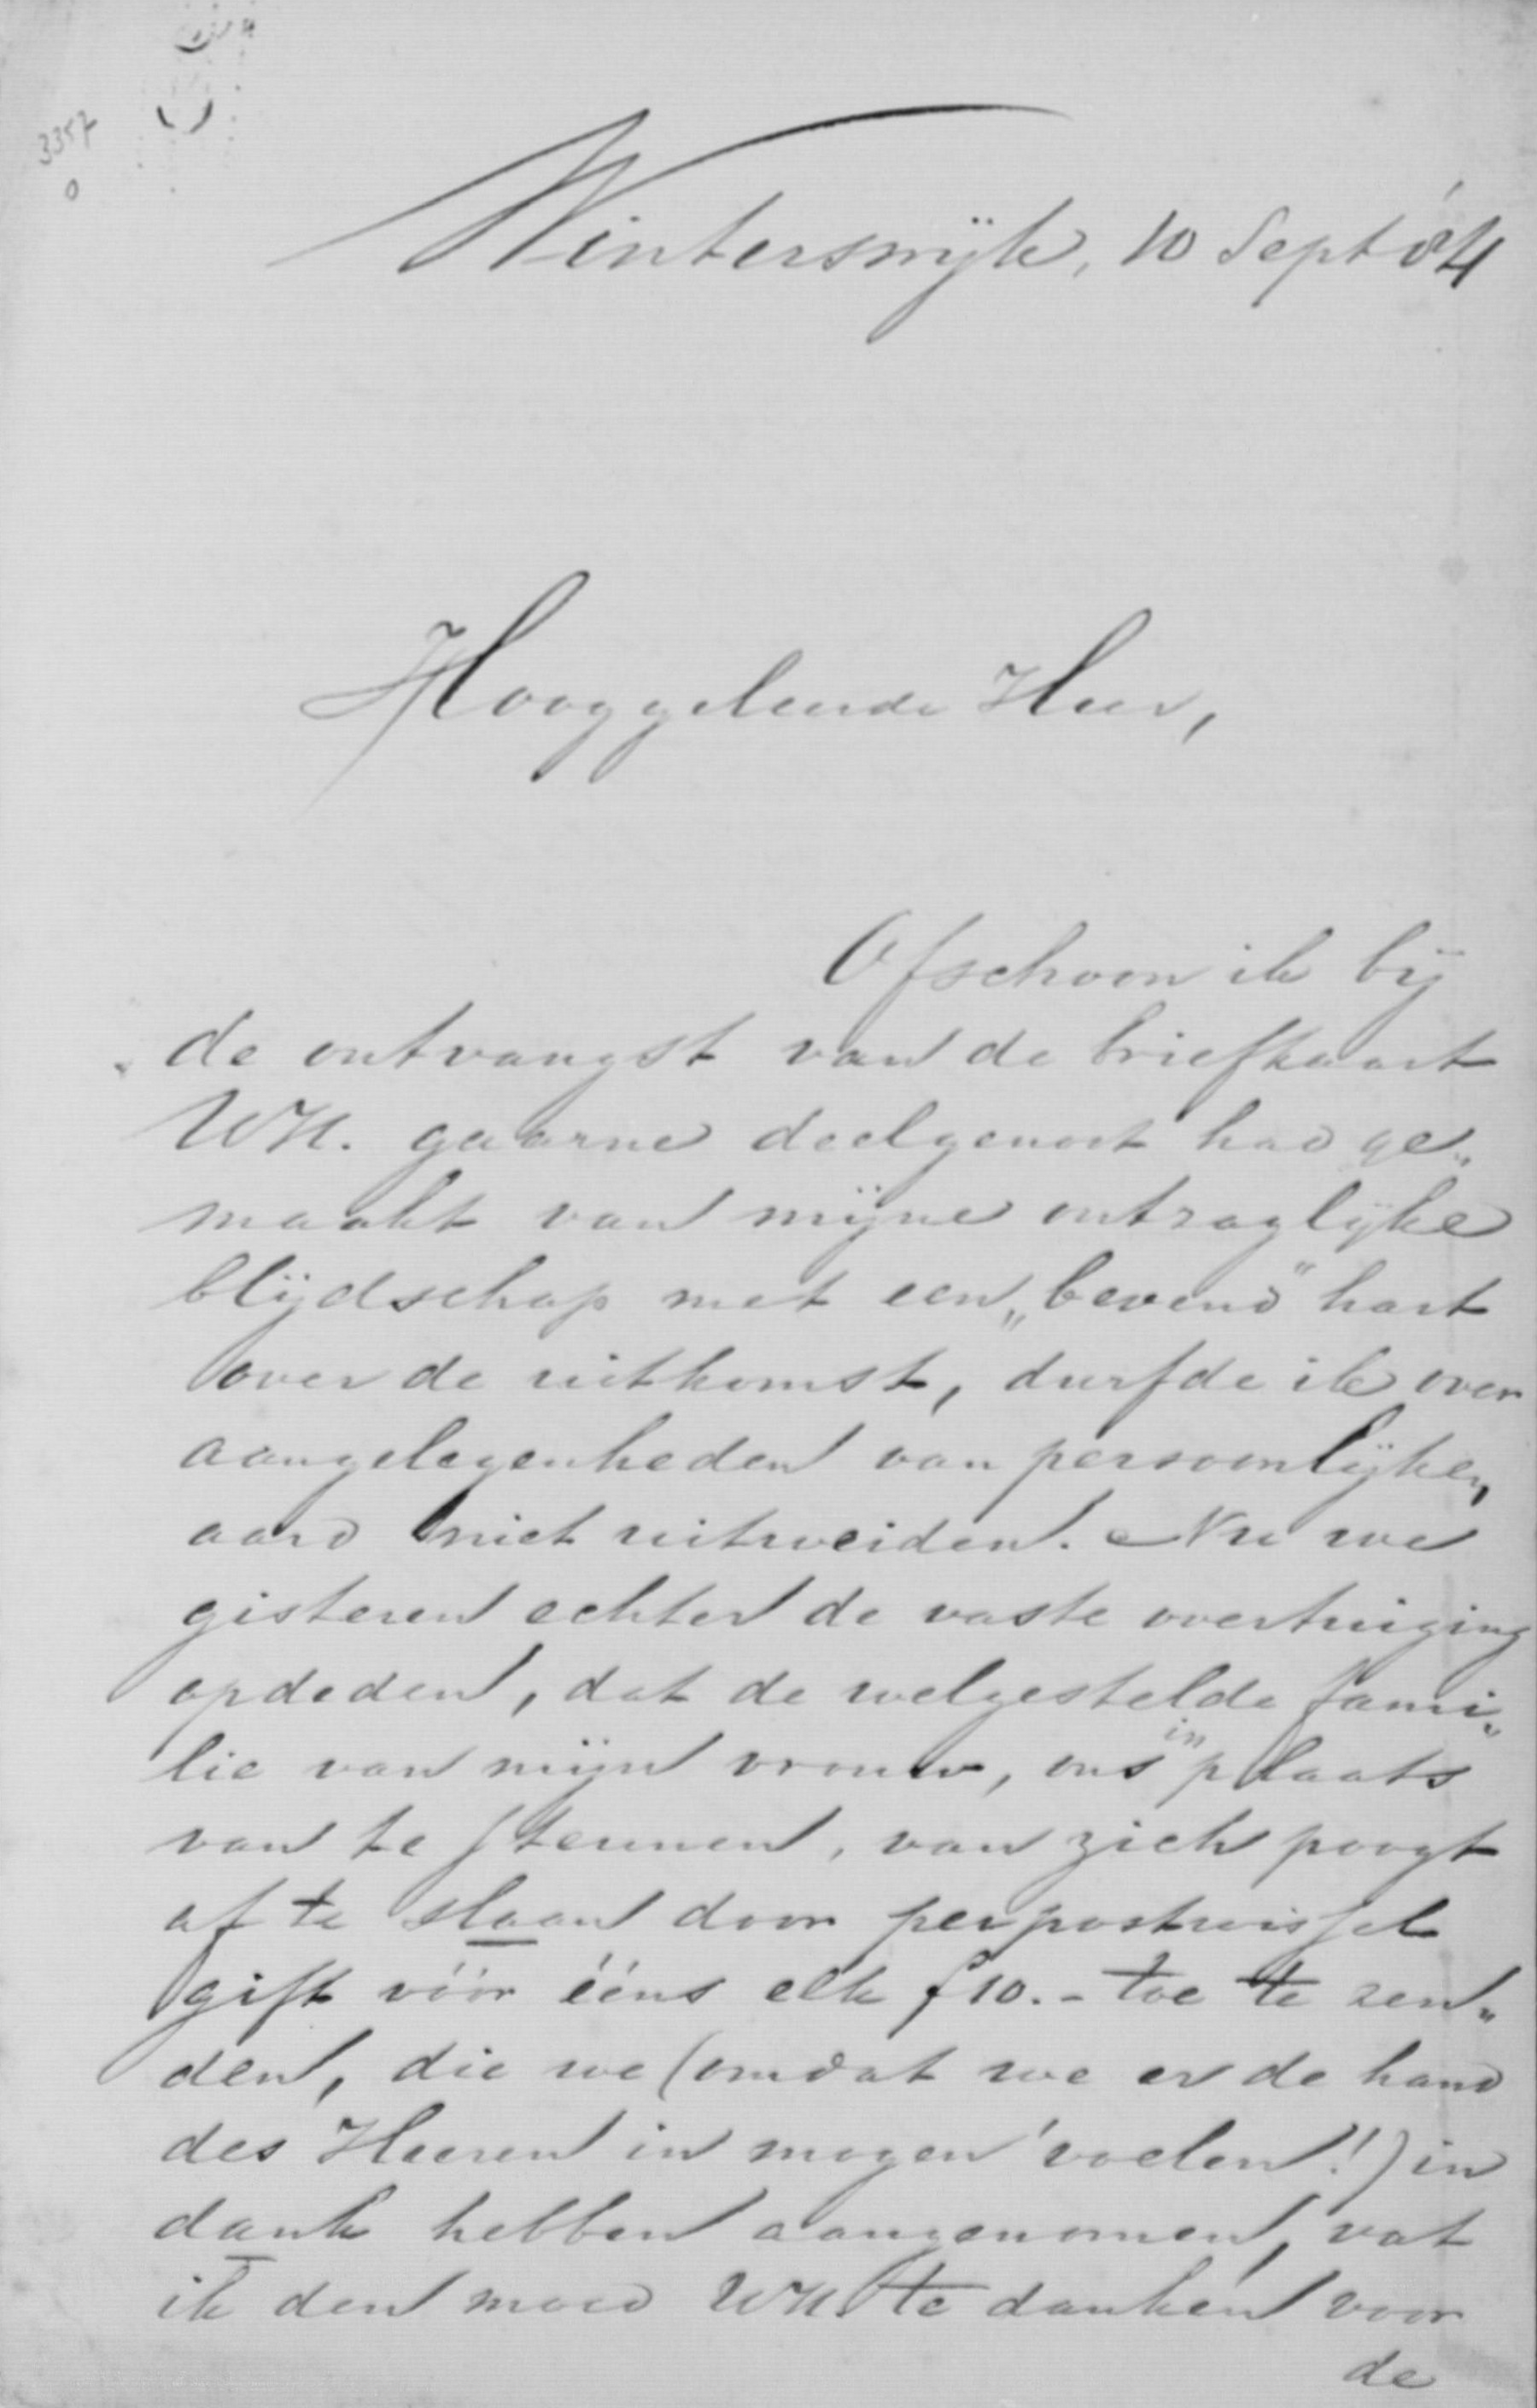 3357
0
Winterswijk, 10 Sept '84
Hooggeleerde Heer,
Ofschoon ik bij
de ontvangst van de briefkaart
UH. gaarne deelgenoot had ge„
maakt van mijne
blijdschap met een „bevend" hart
over de uitkomst, durfde ik over
aangelegenheden van persoonlijken
aard niet uitweiden. Nu we
gisteren echter de vaste overtuiging
opdeden, dat de welgestelde fami„
lie van mijn vrouw, ons in plaats
van te steunen, van zich poogt
af te slaan door per postwissel
gift vóór ééns elk f 10.- toe te zen„
den, die we (omdat we er de hand
des Heeren in mogen voelen!) in
dank hebben aangenomen, vat
ik den moed UH. te danken voor
de